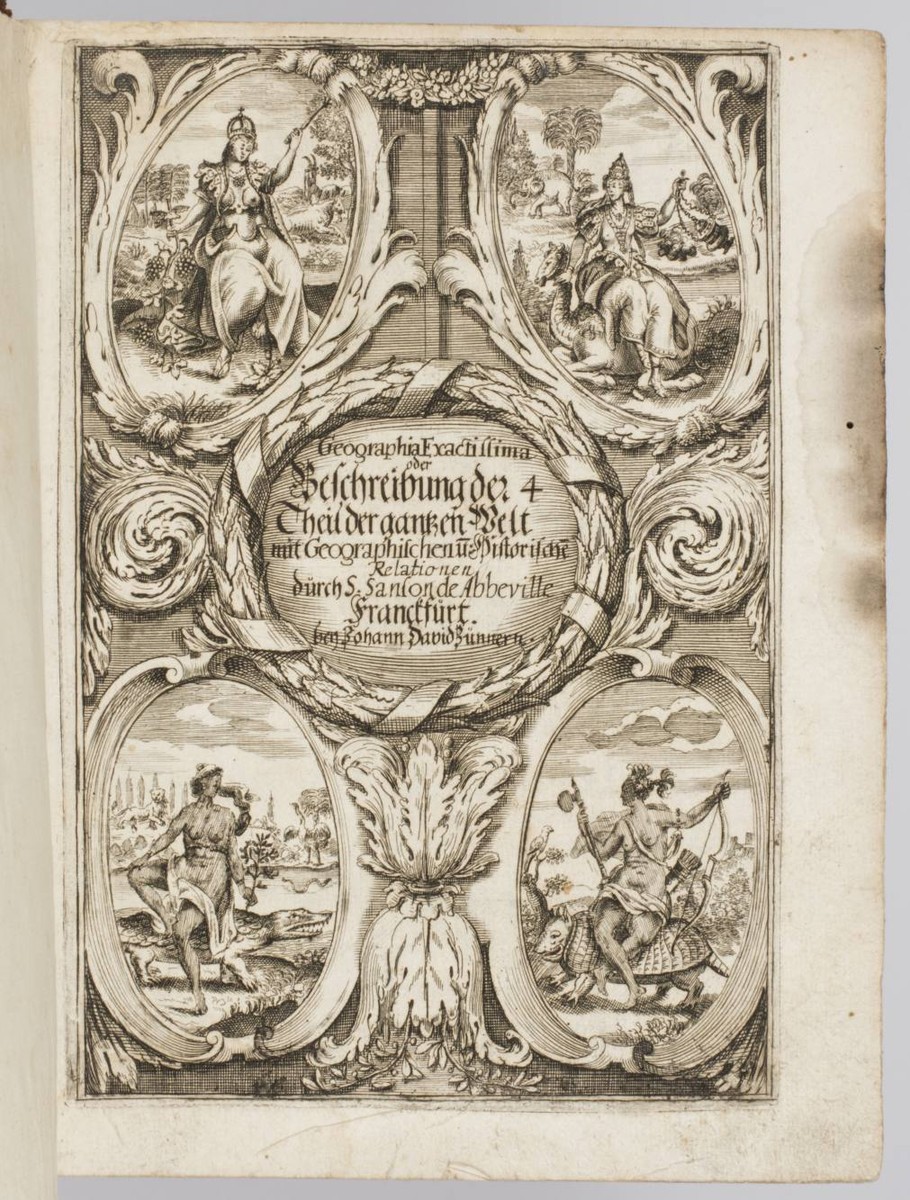 Geographia Exactissima
oder
Beschreibung der 4
Theil der gantzen Welt
mit Geographischen uñ Historischẽ
Relationen
dŭrch S. Sanson de Abbeville
Franckfŭrt.
beÿ Johann David Zŭnnern.